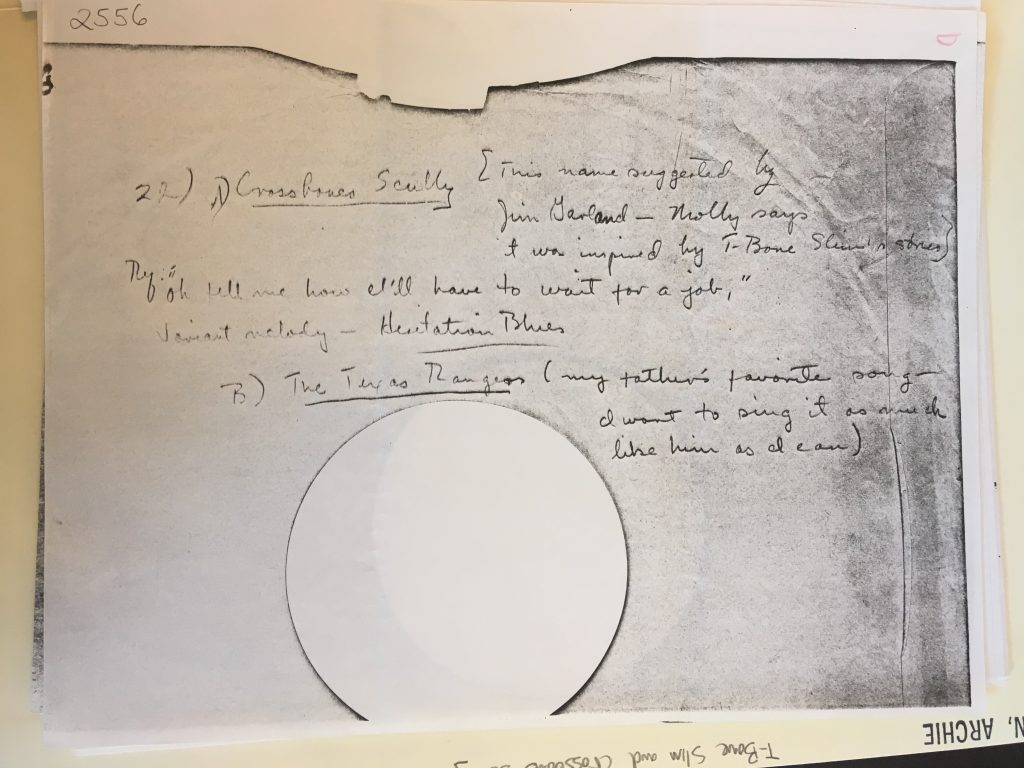 2556
D
22) A) Crossbones Scully [This name suggested by
Jim Garland – Molly says
it was inspired by T-Bone Slim's stories]
"Oh tell me how I'll have to wait for a job,"
Variant melody – Hesitation Blues
B) The Texas Rangers (my father's favorite song –
I want to sing it as much
like him as I can)
N, ARCHIE
T-Bone Slim and Crossbones